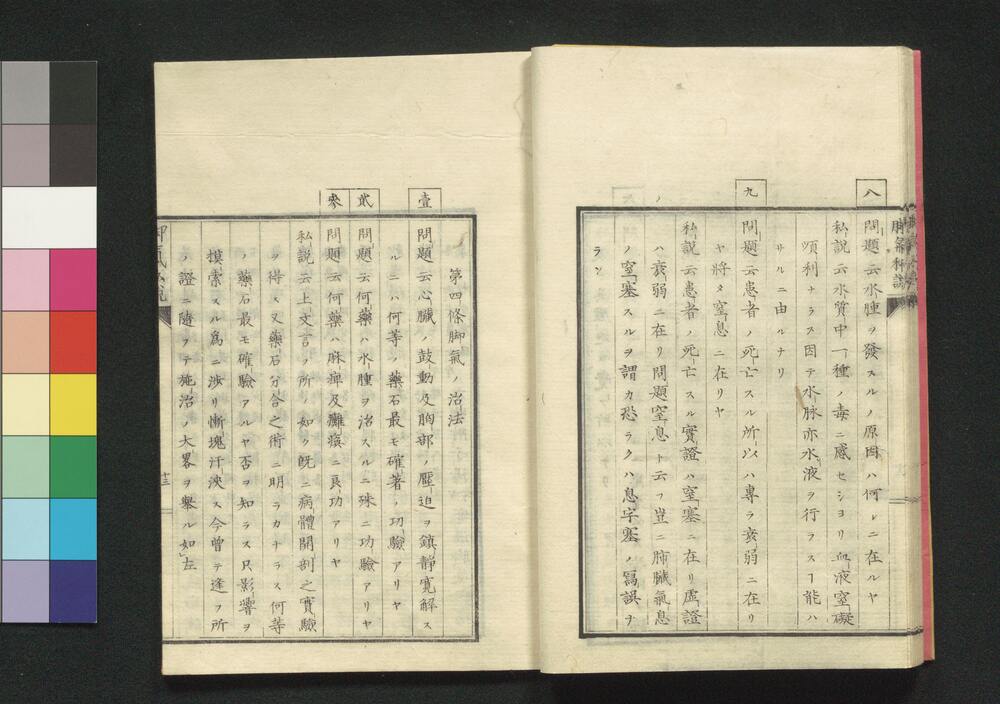 八
問題云水腫ヲ發スルノ原因ハ何レニ在ルヤ
私説云水質中一種ノ毒ニ感セシヨリ血液窒礙
順利ナラス因テ水脉亦水液ヲ行ラスヿ能ハ
サルニ由ルナリ
九
問題云患者ノ死亡スル所以ハ專ラ衰弱ニ在リ
ヤ將タ窒息ニ在リヤ
私説云患者ノ死亡スル實證ハ窒塞ニ在リ虚證
ハ衰弱ニ在リ問題窒息ト云フ豈ニ肺臓氣息
ノ窒塞スルヲ謂カ恐ラクハ息字塞ノ寫誤ヲ
ラン
第四條脚氣ノ治法
壹
問題云心臓ノ鼓動及胸部ノ壓迫ヲ鎮靜寛解ス
ルニハ何等ノ藥石最モ確著ノ功驗アリヤ
貳
問題云何藥ハ水腫ヲ治スルニ殊ニ功驗アリヤ
參
問題云何藥ハ麻痺及癱瘓ニ良功アリヤ
私説云上文言フ所ノ如ク既ニ病體開剖之實驗
ヲ得ス又藥石分合之術ニ明ラカナラス何等
ノ藥石最モ確驗アルヤ否ヲ知ラス只影響ヲ
摸索スル爲ニ渉リ慚塊汗浹ス今曾テ逢フ所
ノ證ニ隨ヲテ施治ノ大畧ヲ擧ル如左
十三